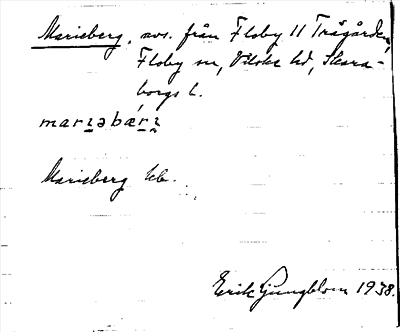 Marieberg, avs. från Floby 11 Trägården,
Floby sn, Vilske hd, Skara-
borgs l.
marıəbærı
Marieberg Ub.
Erik Ljungblom 1938.